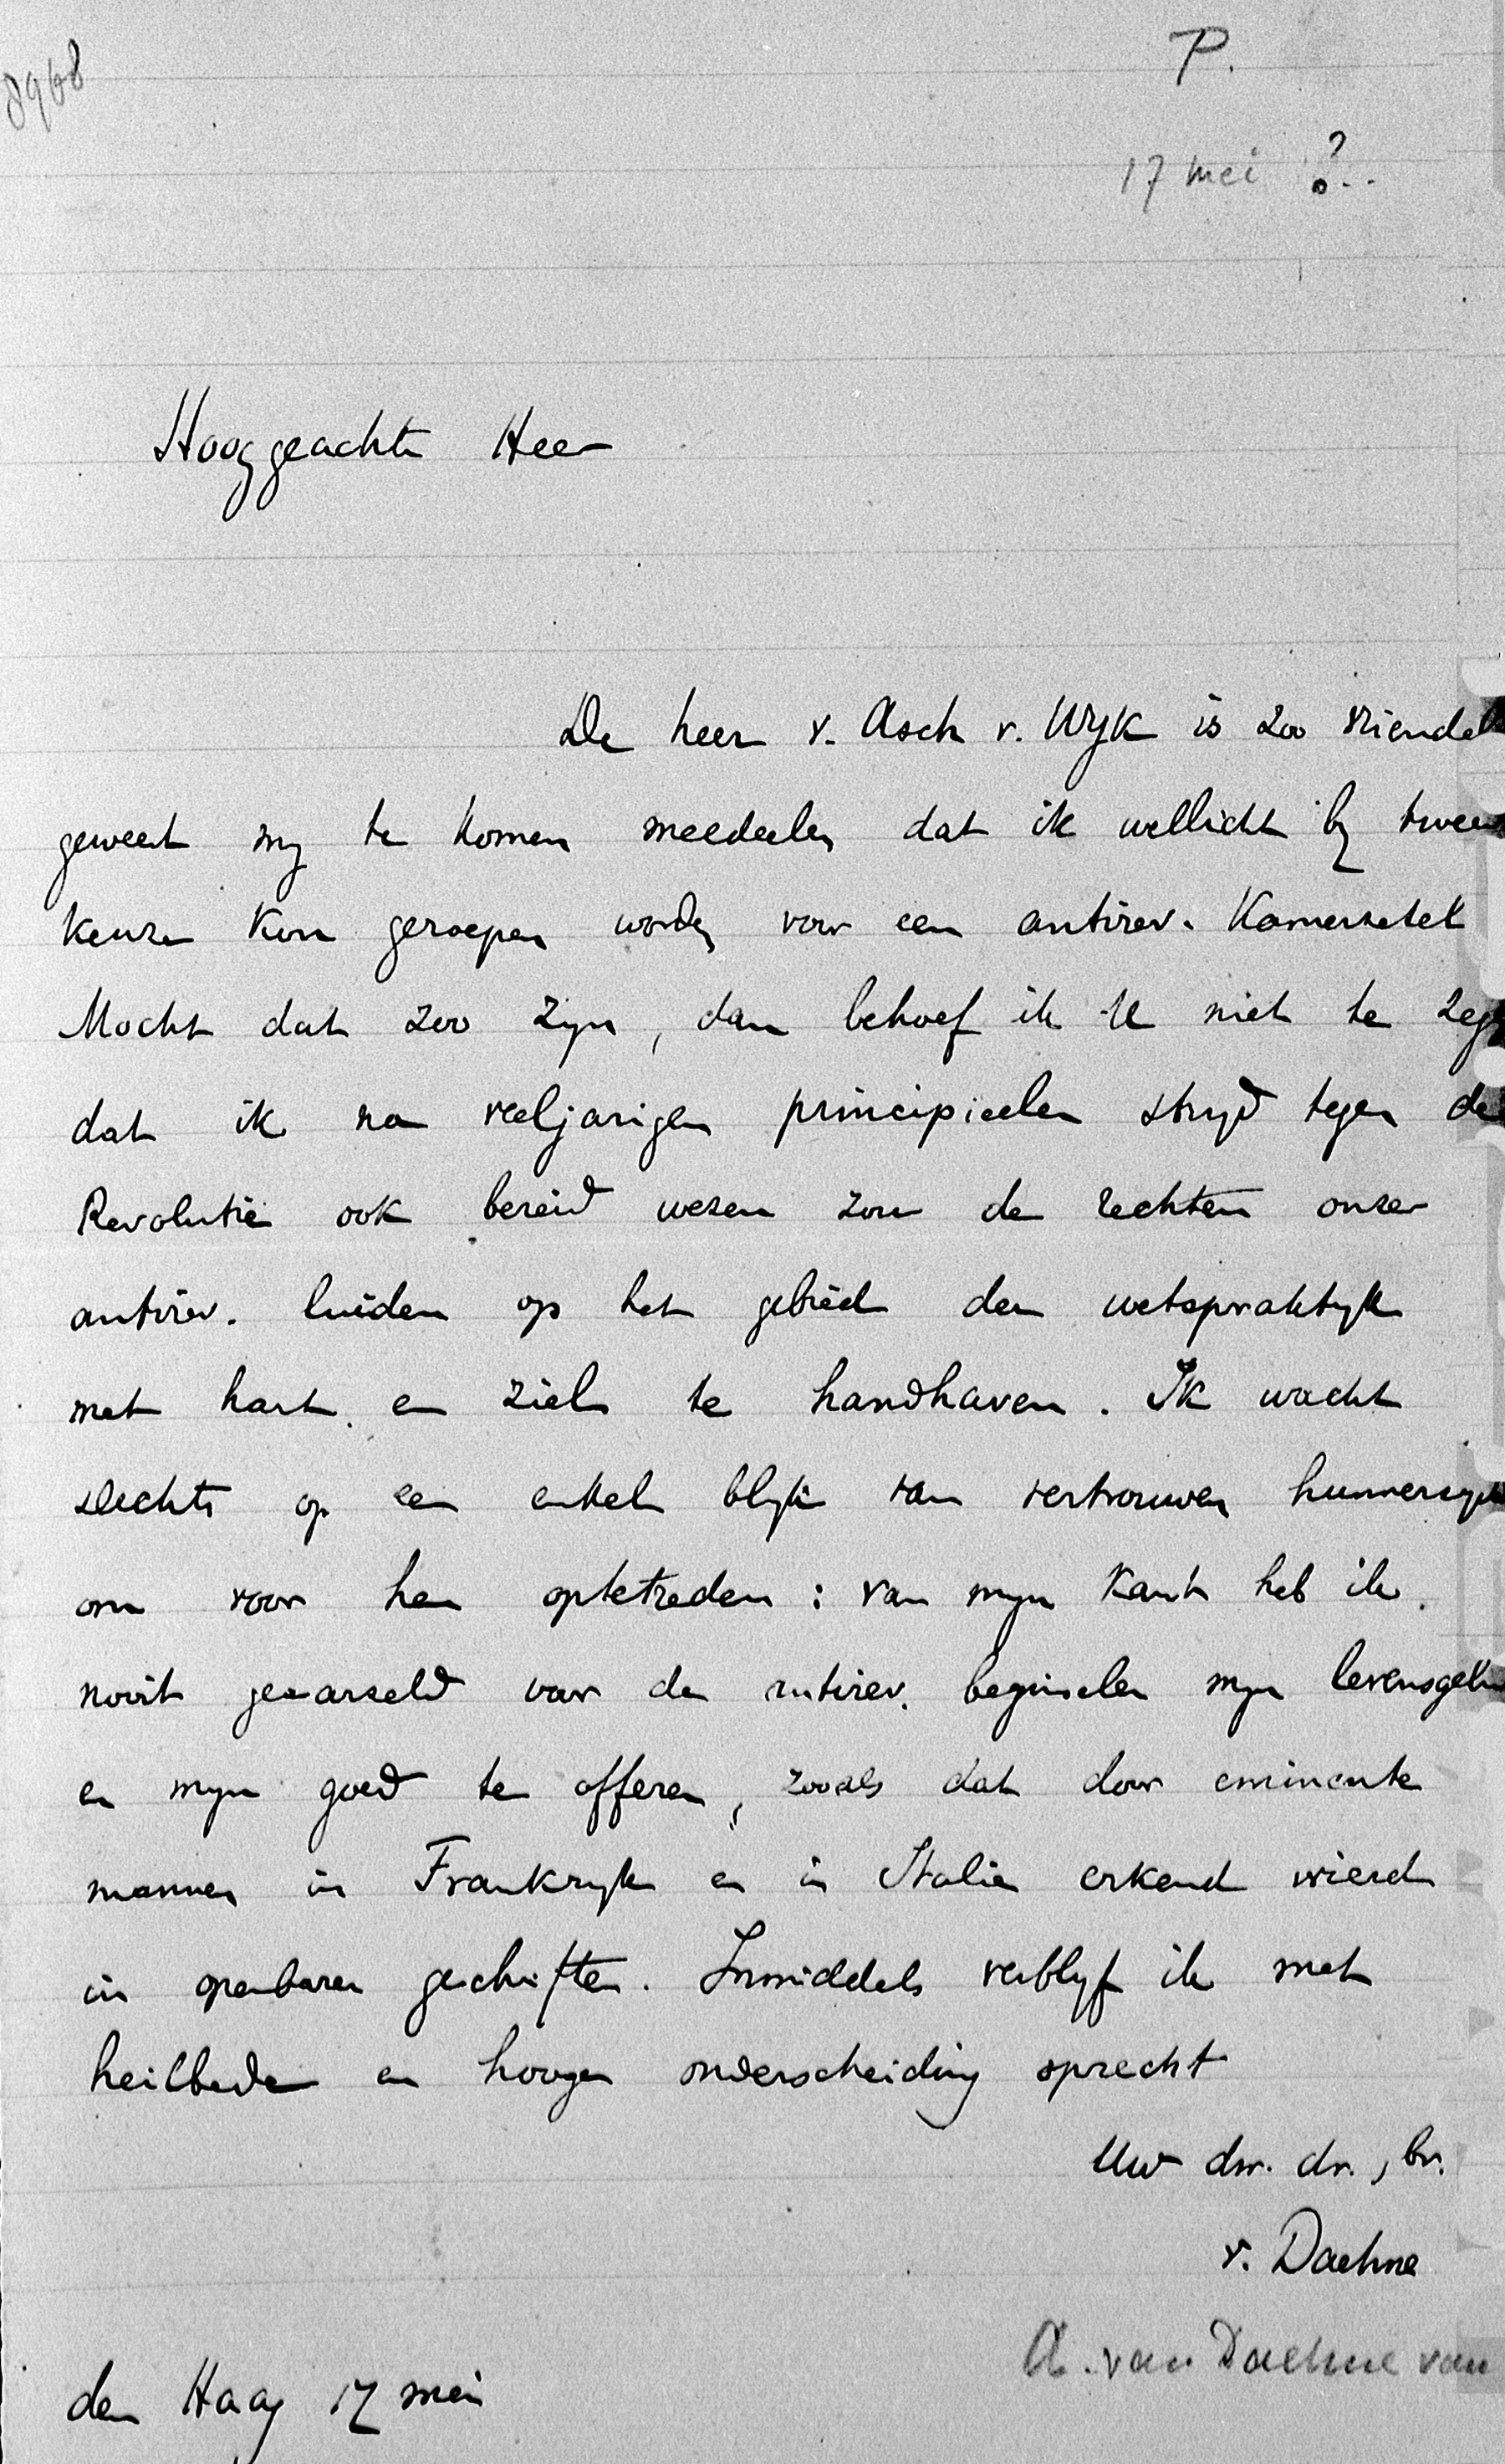 8968
P.
17 mei ?..
Hooggeachte Heer
De heer v. Asch v. Wyk is zoo vriendel
geweest my te komen meedeelen dat ik wellicht by twee
keuze kon geroepen worden voor een antirev. Kamerzetel
Mocht dat zoo zyn, dan behoef ik U niet te zeg
dat ik na veeljarigen principieelen stryd tegen de
Revolutie ook bereid wezen zou de rechten onzer
antirev. luiden op het gebied der wetspraktyk
met hart en ziel te handhaven. Ik wacht
slechts op een enkel blyk van vertrouwen hunnerzyds
om voor hen optetreden: van myn kant heb ik
nooit geaarzeld voor de antirev. beginselen myn levensgeluk
en myn goed te offeren, zooals dat door eminente
mannen in Frankryk en in Italie erkend wierd
in openbare geschriften. Inmiddels verblyf ik met
heilbede en hooge onderscheiding oprecht
Uw dw. dr., br.
v. Daehne
A. van Daehne van
den Haag 17 mei